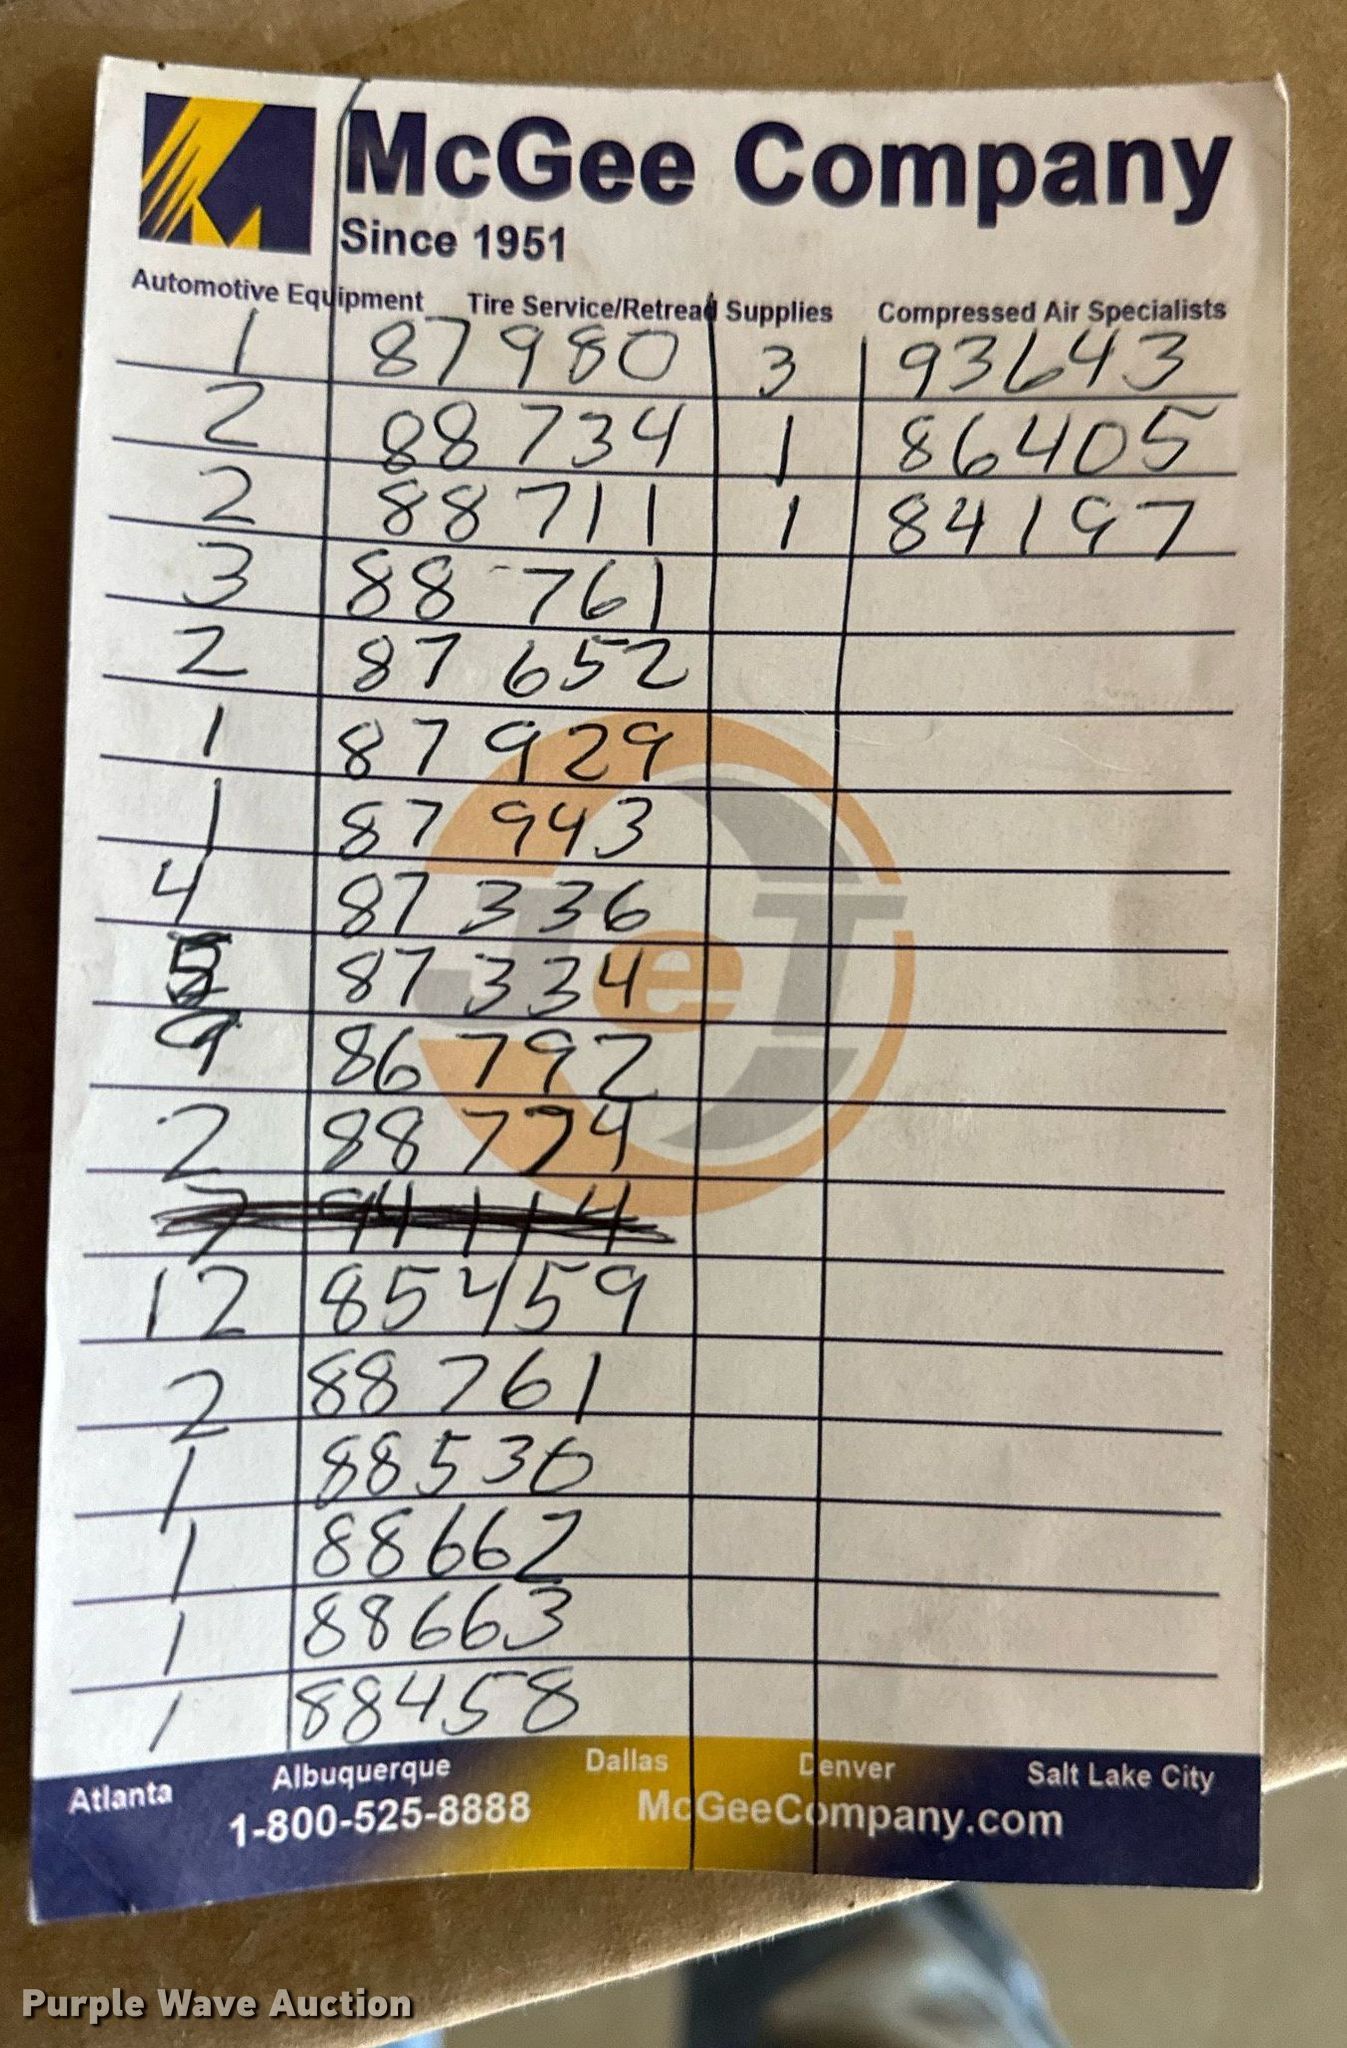 McGee Company
Since 1951
Automotive Equipment Tire Service/Retread Supplies Compressed Air Specialists
1 87980 3 93643
2 88734 1 86405
2 88711 1 84197
3 88-761
2 87652
1 87929
1 87943
4 87336
87334
9 86792
2 88794
7 94114
12 85459
2 88761
1 88536
1 88662
1 88663
1 88458
JeT
Atlanta Albuquerque Dallas Denver Salt Lake City
1-800-525-8888 McGeeCompany.com
Purple Wave Auction